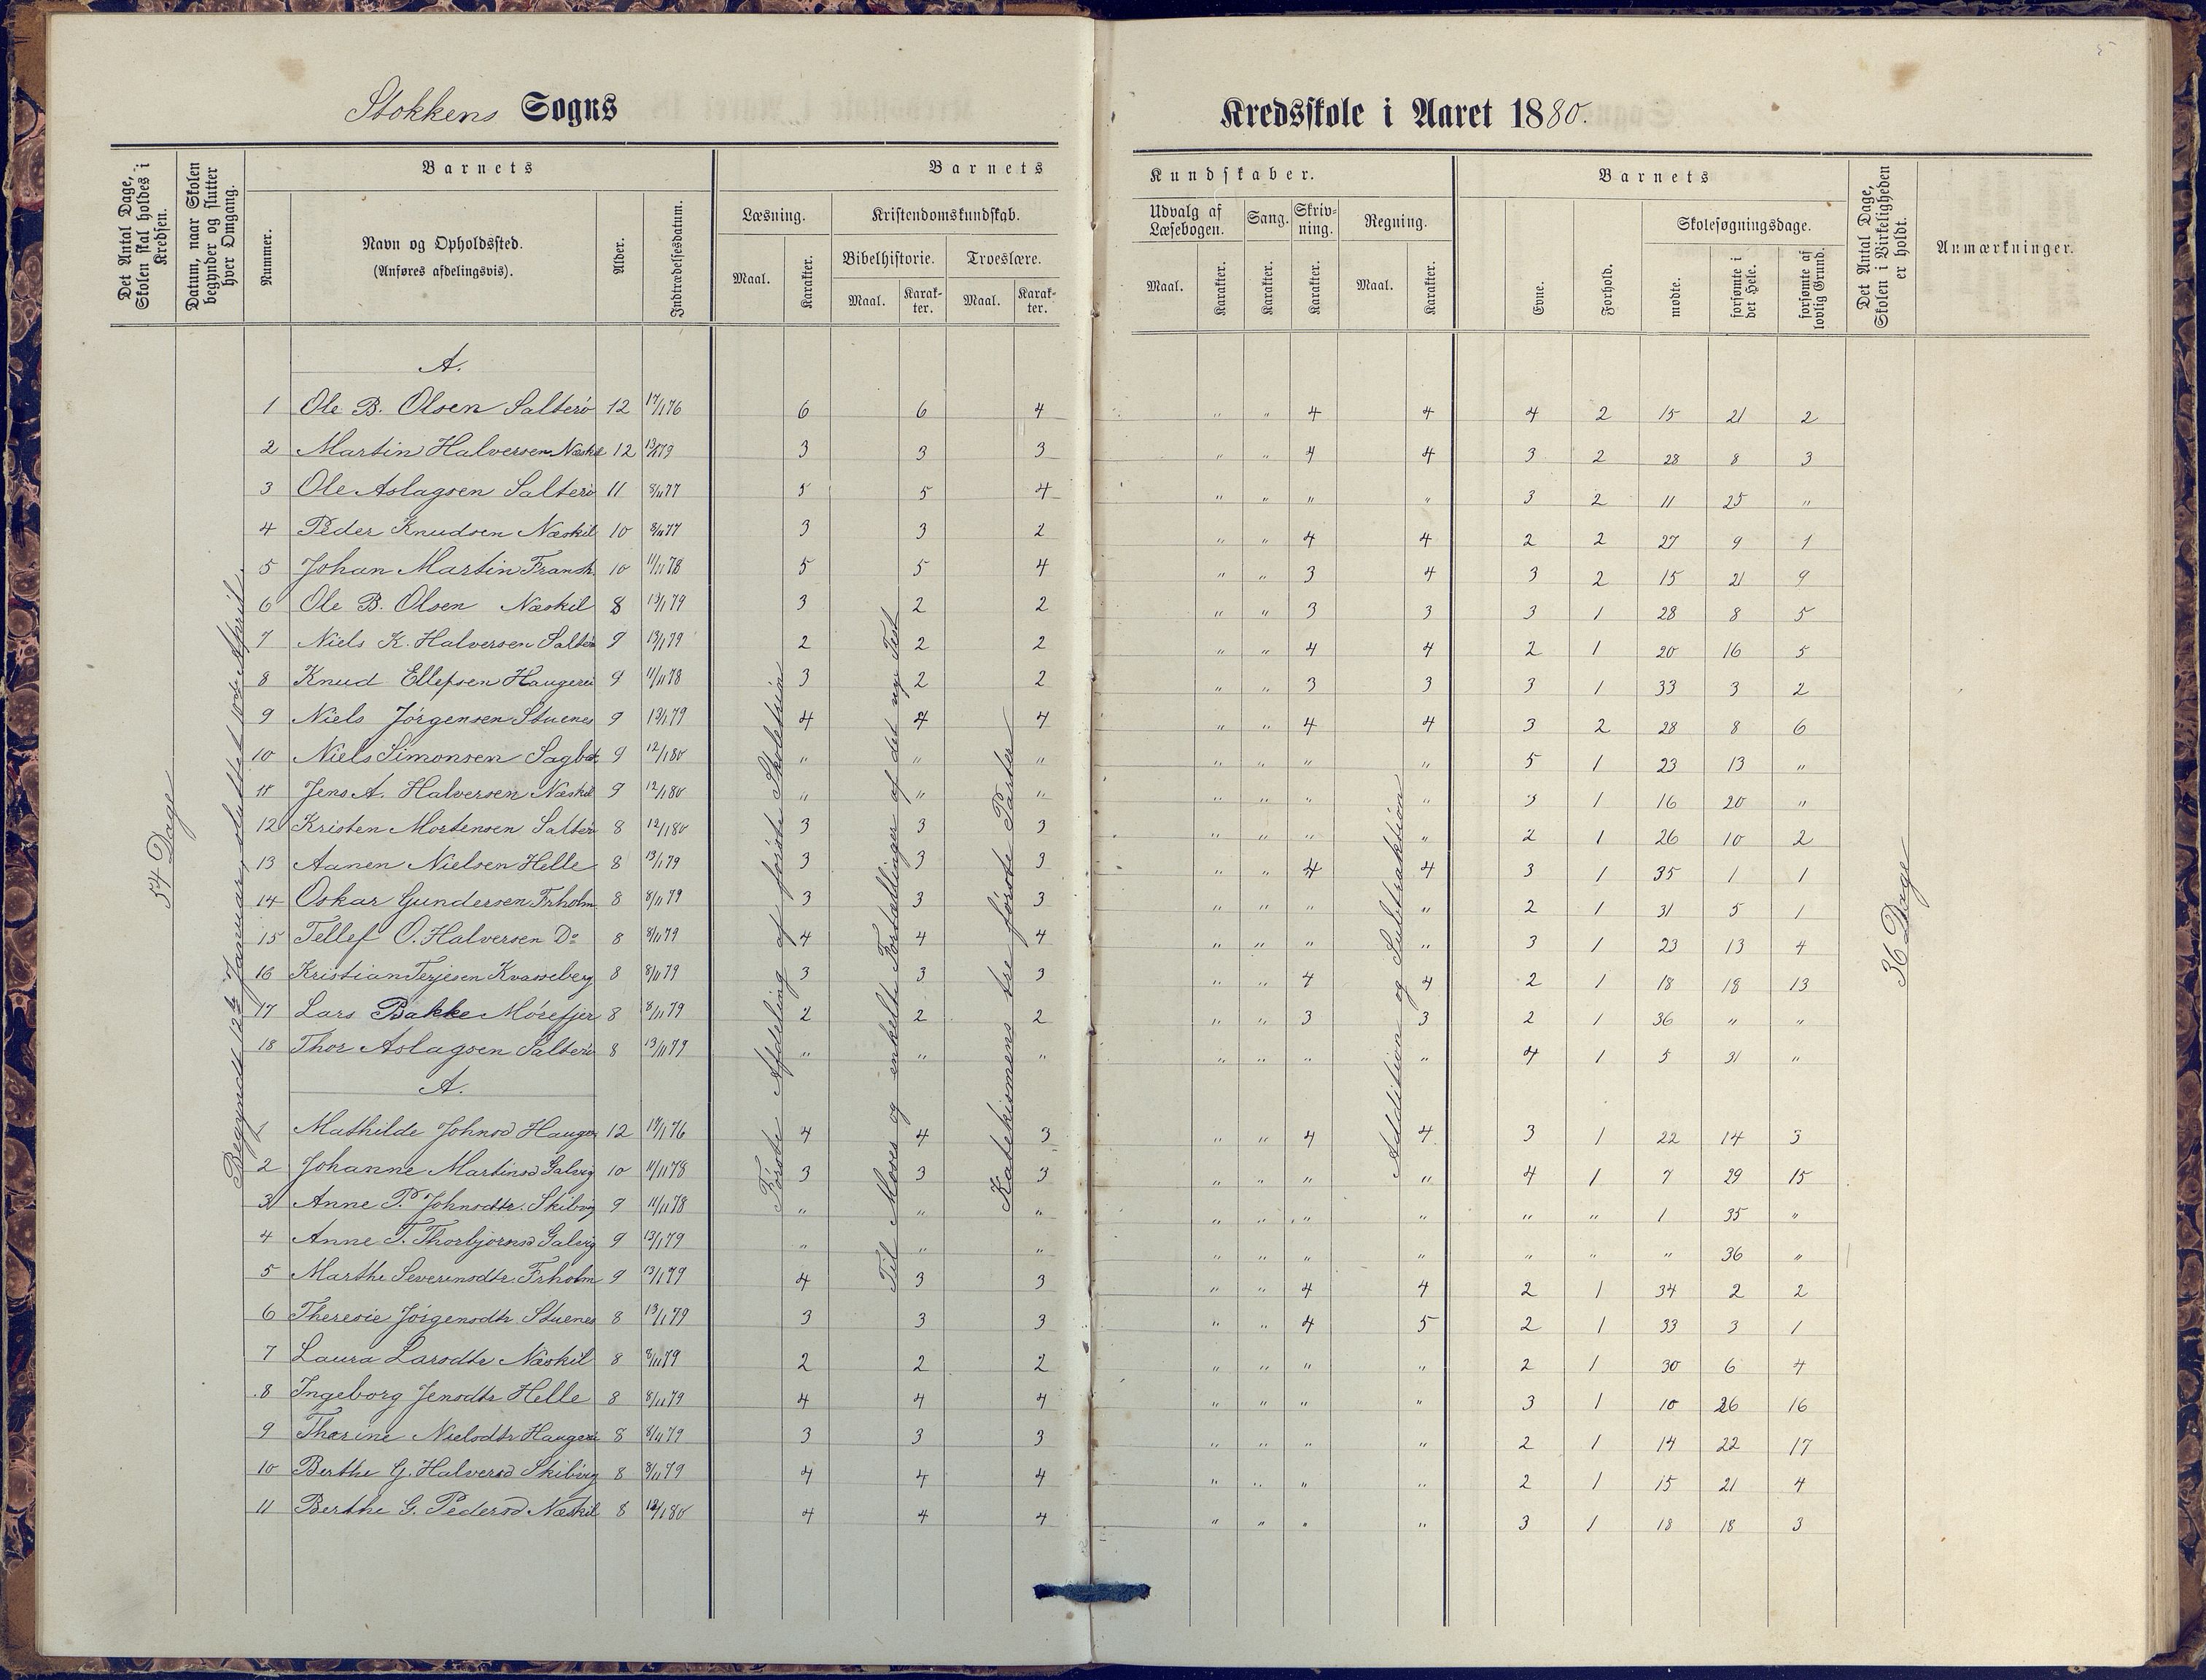 Stokkens Sogns Kredsskole i Aaret 1880.
Det Antal Dage, Skolen skal holdes i Kredsen.
Datum, naar Skolen begynder og slutter hver Omgang.
Barnets
Nummer.
Navn og Opholdssted.
(Anføres afdelingsvis).
Alder.
Indtrædelsesdatum.
Barnets Kundskaber.
Læsning.
Maal. Karakter.
Kristendomskundskab.
Bibelhistorie. Troeslære.
Maal. Karakter. Maal. Karakter.
Udvalg af Læsebogen. Sang. Skrivning. Regning.
Maal. Karakter. Karakter. Karakter. Maal. Karakter.
Barnets
Evne. Forhold.
Skolesøgningsdage.
mødte. forsømte i det Hele. forsømte af lovlig Grund.
Det Antal Dage, Skolen i Virkeligheden er holdt.
Anmærkninger.
54 Dage
Begyndt 12te Januar, sluttet 10de April.
Første Afdeling af første Skoletrin
Til Moses og enkelte Fortællinger af det nye Test.
Katekismens tre første Parter
Addition og Subtraktion
36 Dage
A.
1 Ole B. Olsen Salterö 12 17/1 76 6 6 4 " " 4 4 4 2 15 21 2
2 Martin Halversen Næskil 12 13/1 79 3 3 3 " " 4 4 3 2 28 8 3
3 Ole Aslagsen Salterö 11 8/11 77 5 5 4 " " " " 3 2 11 25 "
4 Peder Knudsen Næskil 10 8/11 77 3 3 2 " " 4 4 2 2 27 9 1
5 Johan Martin Fransh. 10 11/11 78 5 5 4 " " 3 4 3 2 15 21 9
6 Ole B. Olsen Næskil 8 13/1 79 3 2 2 " " 3 3 3 1 28 8 5
7 Niels K. Halversen Salterö 9 13/1 79 2 2 2 " " 4 4 2 1 20 16 5
8 Knud Ellefsen Haugerei 9 11/11 78 3 2 2 " " 3 3 3 1 33 3 2
9 Niels Jörgensen Stuenes 9 13/1 79 4 4 4 " " 4 4 3 2 28 8 6
10 Niels Simonsen 9 12/1 80 " " " " " " " 5 1 23 13 "
11 Jens A. Halversen Næskil 9 12/1 80 " " " " " " " 3 1 16 20 "
12 Kristen Mortensen Salterö 8 12/1 80 3 3 3 " " " " 2 1 26 10 2
13 Aanen Nielsen Helle 8 13/1 79 3 3 3 " " 4 4 3 1 35 1 1
14 Oskar Gundersen Frholm 8 8/11 79 3 3 3 " " " " 2 1 31 5 1
15 Tellef O. Halversen Do 8 8/11 79 4 4 4 " " " " 3 1 23 13 4
16 Kristian Terjesen Kvasseberg 8 8/11 79 3 3 3 " " 4 4 2 1 18 18 13
17 Lars Bakke Mörefjer 8 8/11 79 2 2 2 " " 3 3 2 1 36 " "
18 Thor Aslagsen Salterö 8 13/11 79 " " " " " " " 4 1 5 31 "
A.
1 Mathilde Johnsd Hauger 12 19/1 76 4 4 3 " " 4 4 3 1 22 14 3
2 Johanne Martinsd Galvig 10 11/11 78 3 3 3 " " " " 4 1 7 29 15
3 Anne P. Johnsdtr. Skibvig 9 11/11 78 " " " " " " " " " 1 35 "
4 Anne T. Thorbjörnsd Galvig 9 13/1 79 " " " " " " " " " " 36 "
5 Marthe Severinsdtr. Frholm 9 13/1 79 4 3 3 " " 4 4 2 1 34 2 2
6 Theresie Jörgensdtr Stuenes 8 13/1 79 3 3 3 " " 4 5 2 1 33 3 1
7 Laura Larsdtr Næskil 8 8/11 79 2 2 2 " " " " 2 1 30 6 4
8 Ingeborg Jensdtr Helle 8 8/11 79 4 4 4 " " " " 3 1 10 26 16
9 Thorine Nielsdtr Haugerei 8 8/11 79 3 3 3 " " " " 2 1 14 22 17
10 Berthe G. Halversd Skibvig 8 8/11 79 4 4 4 " " " " 2 1 15 21 4
11 Berthe G. Pedersd Næskil 8 12/1 80 4 4 4 " " " " 3 1 18 18 3